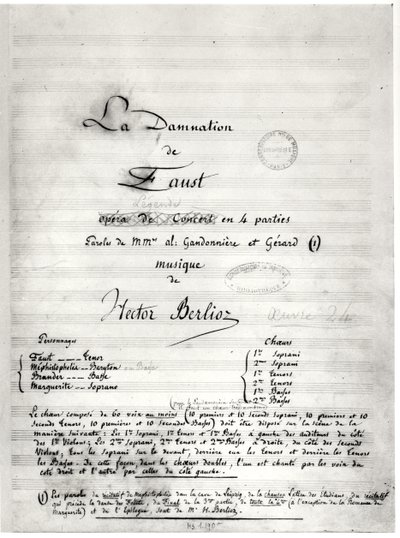 La Damnation
de
Faust
Légende
opéra de Concert en 4 parties
Paroles de MM. al: Gandonnière et Gérard (1)
musique
de
Hector Berlioz
Œuvre 24
Personnages
Faust Tenor
Méphistophélès Baryton ou Basse
Brander Basse
Marguerite Soprano
Chœurs
1ers Soprani
2mes Soprani
1ers Tenors
2mes Tenors
1ers Basses
2mes Basses
Le chœur composé de 60 voix au moins (10 premiers et 10 seconds Soprani, 10 premiers et 10
Seconds Tenors, 10 premiers et 10 secondes Basses) doit être disposé sur la scène de la
manière suivante: les 1ers Soprani, 1ers Tenors et 1res Basses à gauche des auditeurs du côté
des 1ers Violons; les 2mes Soprani, 2mes Tenors et 2mes Basses à droite, du côté des seconds
Violons; tous les Soprani sur le devant, derrière eux les Tenors et derrière les Tenors
les Basses. De cette façon, dans les chœurs doubles, l'un est chanté par les voix du
côté droit et l'autre par celles du côté gauche.
(1) Les paroles du récitatif de Méphistophélès dans la cave de Leipzig, de la chanson latine des étudians, du récitatif
qui précède la danse des Follets, du Final de la 3me partie, de toute la 4me (à l'exception de la Romance de
Marguerite) et de l'Epilogue, sont de Mr H. Berlioz.